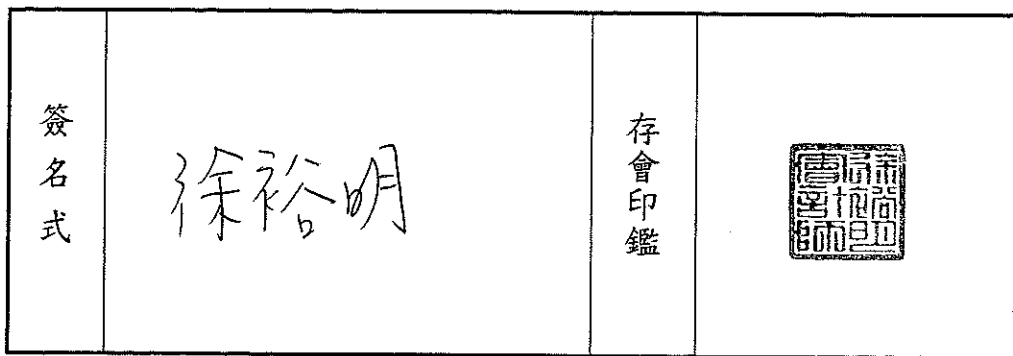 簽名式
徐裕明
存會印鑑
徐裕明會計師